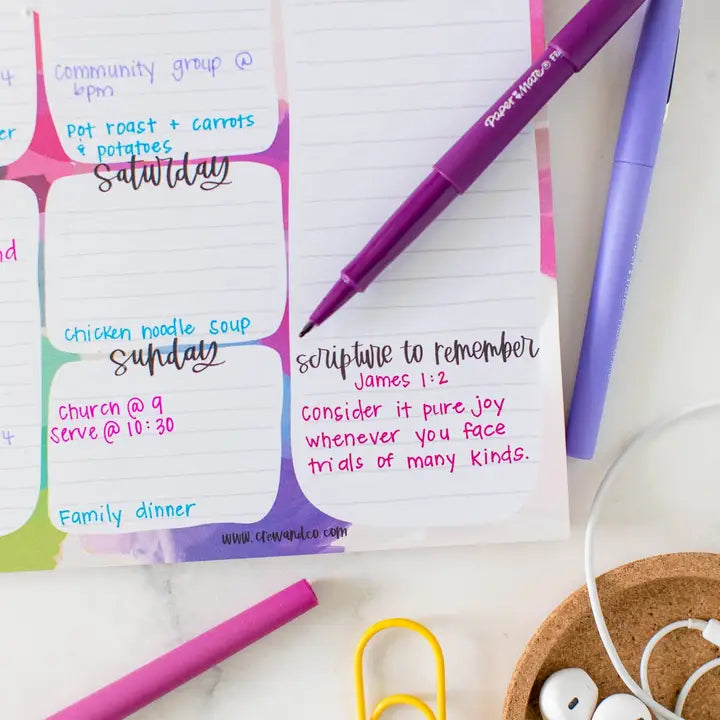 Community group @
6pm
Pot roast + carrots
& potatoes
Saturday
Chicken noodle soup
Sunday
Church @ 9
Serve @ 10:30
Family dinner
www.crewandco.com
scripture to remember
James 1:2
Consider it pure joy
whenever you face
trials of many kinds.
Paper Mate®